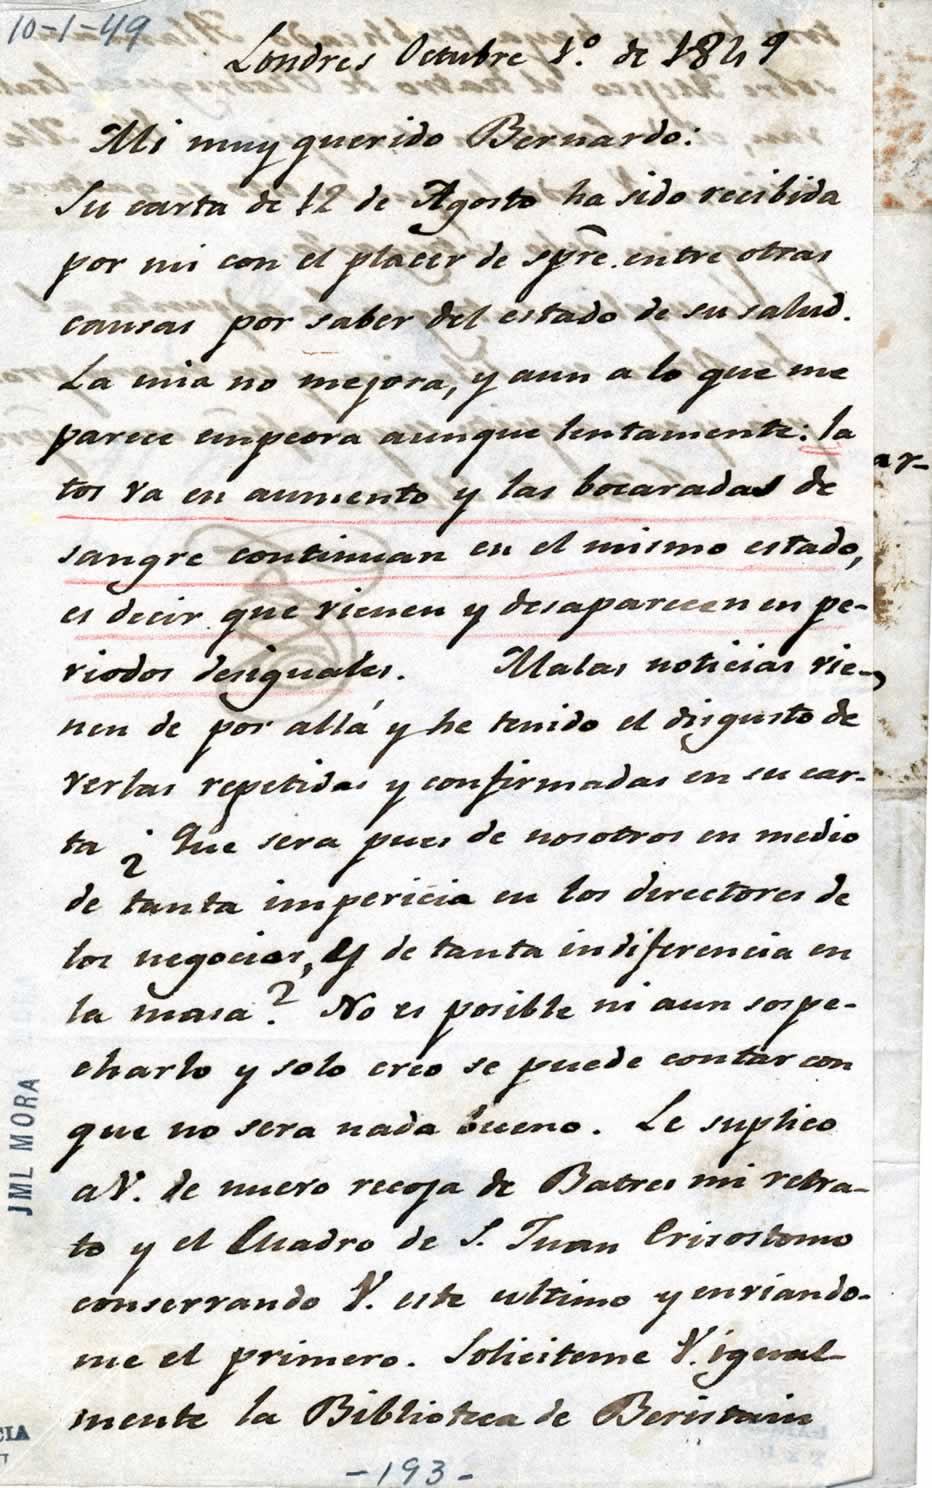 10-1-49
Londres Octubre 1.º de 1849
Mi muy querido Bernardo:
Su carta de 12 de Agosto ha sido recibida
por mi con el placer de spre. entre otras
causas por saber del estado de su salud.
La mia no mejora, y aun a lo que me
parece empeora aunque lentamente: la
tos va en aumento y las bocaradas de
sangre continuan en el mismo estado,
es decir que vienen y desaparecen en pe-
riodos desiguales. Malas noticias vie-
nen de por allá y he tenido el disgusto de
verlas repetidas y confirmadas en su car-
ta ¿Que sera pues de nosotros en medio
de tanta impericia en los directores de
los negocios, y de tanta indiferencia en
la masa? No es posible ni aun sospe-
charlo y solo creo se puede contar con
que no sera nada bueno. Le suplico
a V. de nuevo recoja de Batres mi retra-
to y el Cuadro de S. Juan Crisostomo
conservando V. este ultimo y enviando-
me el primero. Soliciteme V. igual-
mente la Biblioteca de Beristain
-193-
JML MORA
CIA
ar-